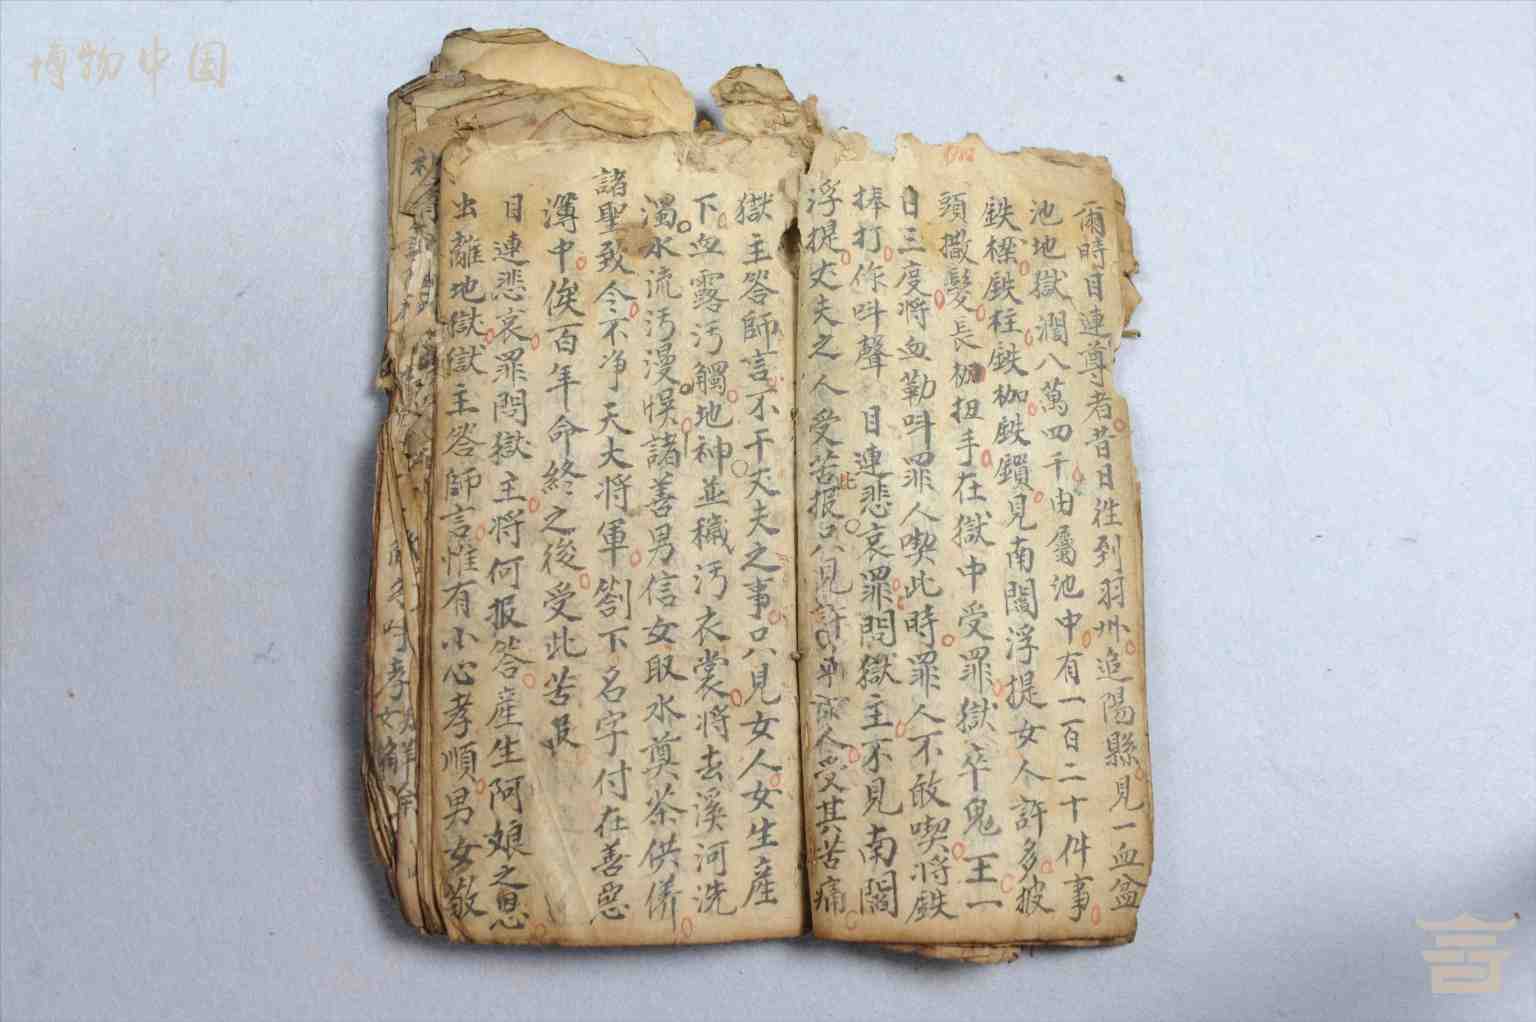 博物中国
爾時目連尊者昔日徃列羽州追陽縣見一血盆
池地獄濶八萬四千由属池中有一百二十件事
鉄樑鉄柱鉄枷鉄鎻見南閻浮提女人許多披
頭撒髮長枷扭手在獄中受罪獄卒鬼王一
日三度将血勒呌罪人喫此時罪人不敢喫将鉄
捧打作呌聲 目連悲哀罪問獄主不見南閻
浮提丈夫之人受苦报只見許 人受其苦痛
獄主答師言不干丈夫之事只見女人女生産
下血露汚觸地神並穢汚衣裳将去溪河洗
濁水流汚漫悞諸善男信女取水奠茶供偹
諸聖致令不净天大将軍劄下名字付在善惡
薄中俟百年命終之後受此苦报
目連悲哀罪問獄主将何报答産生阿娘之恩
出離地獄獄主答師言惟有小心孝順男女敬